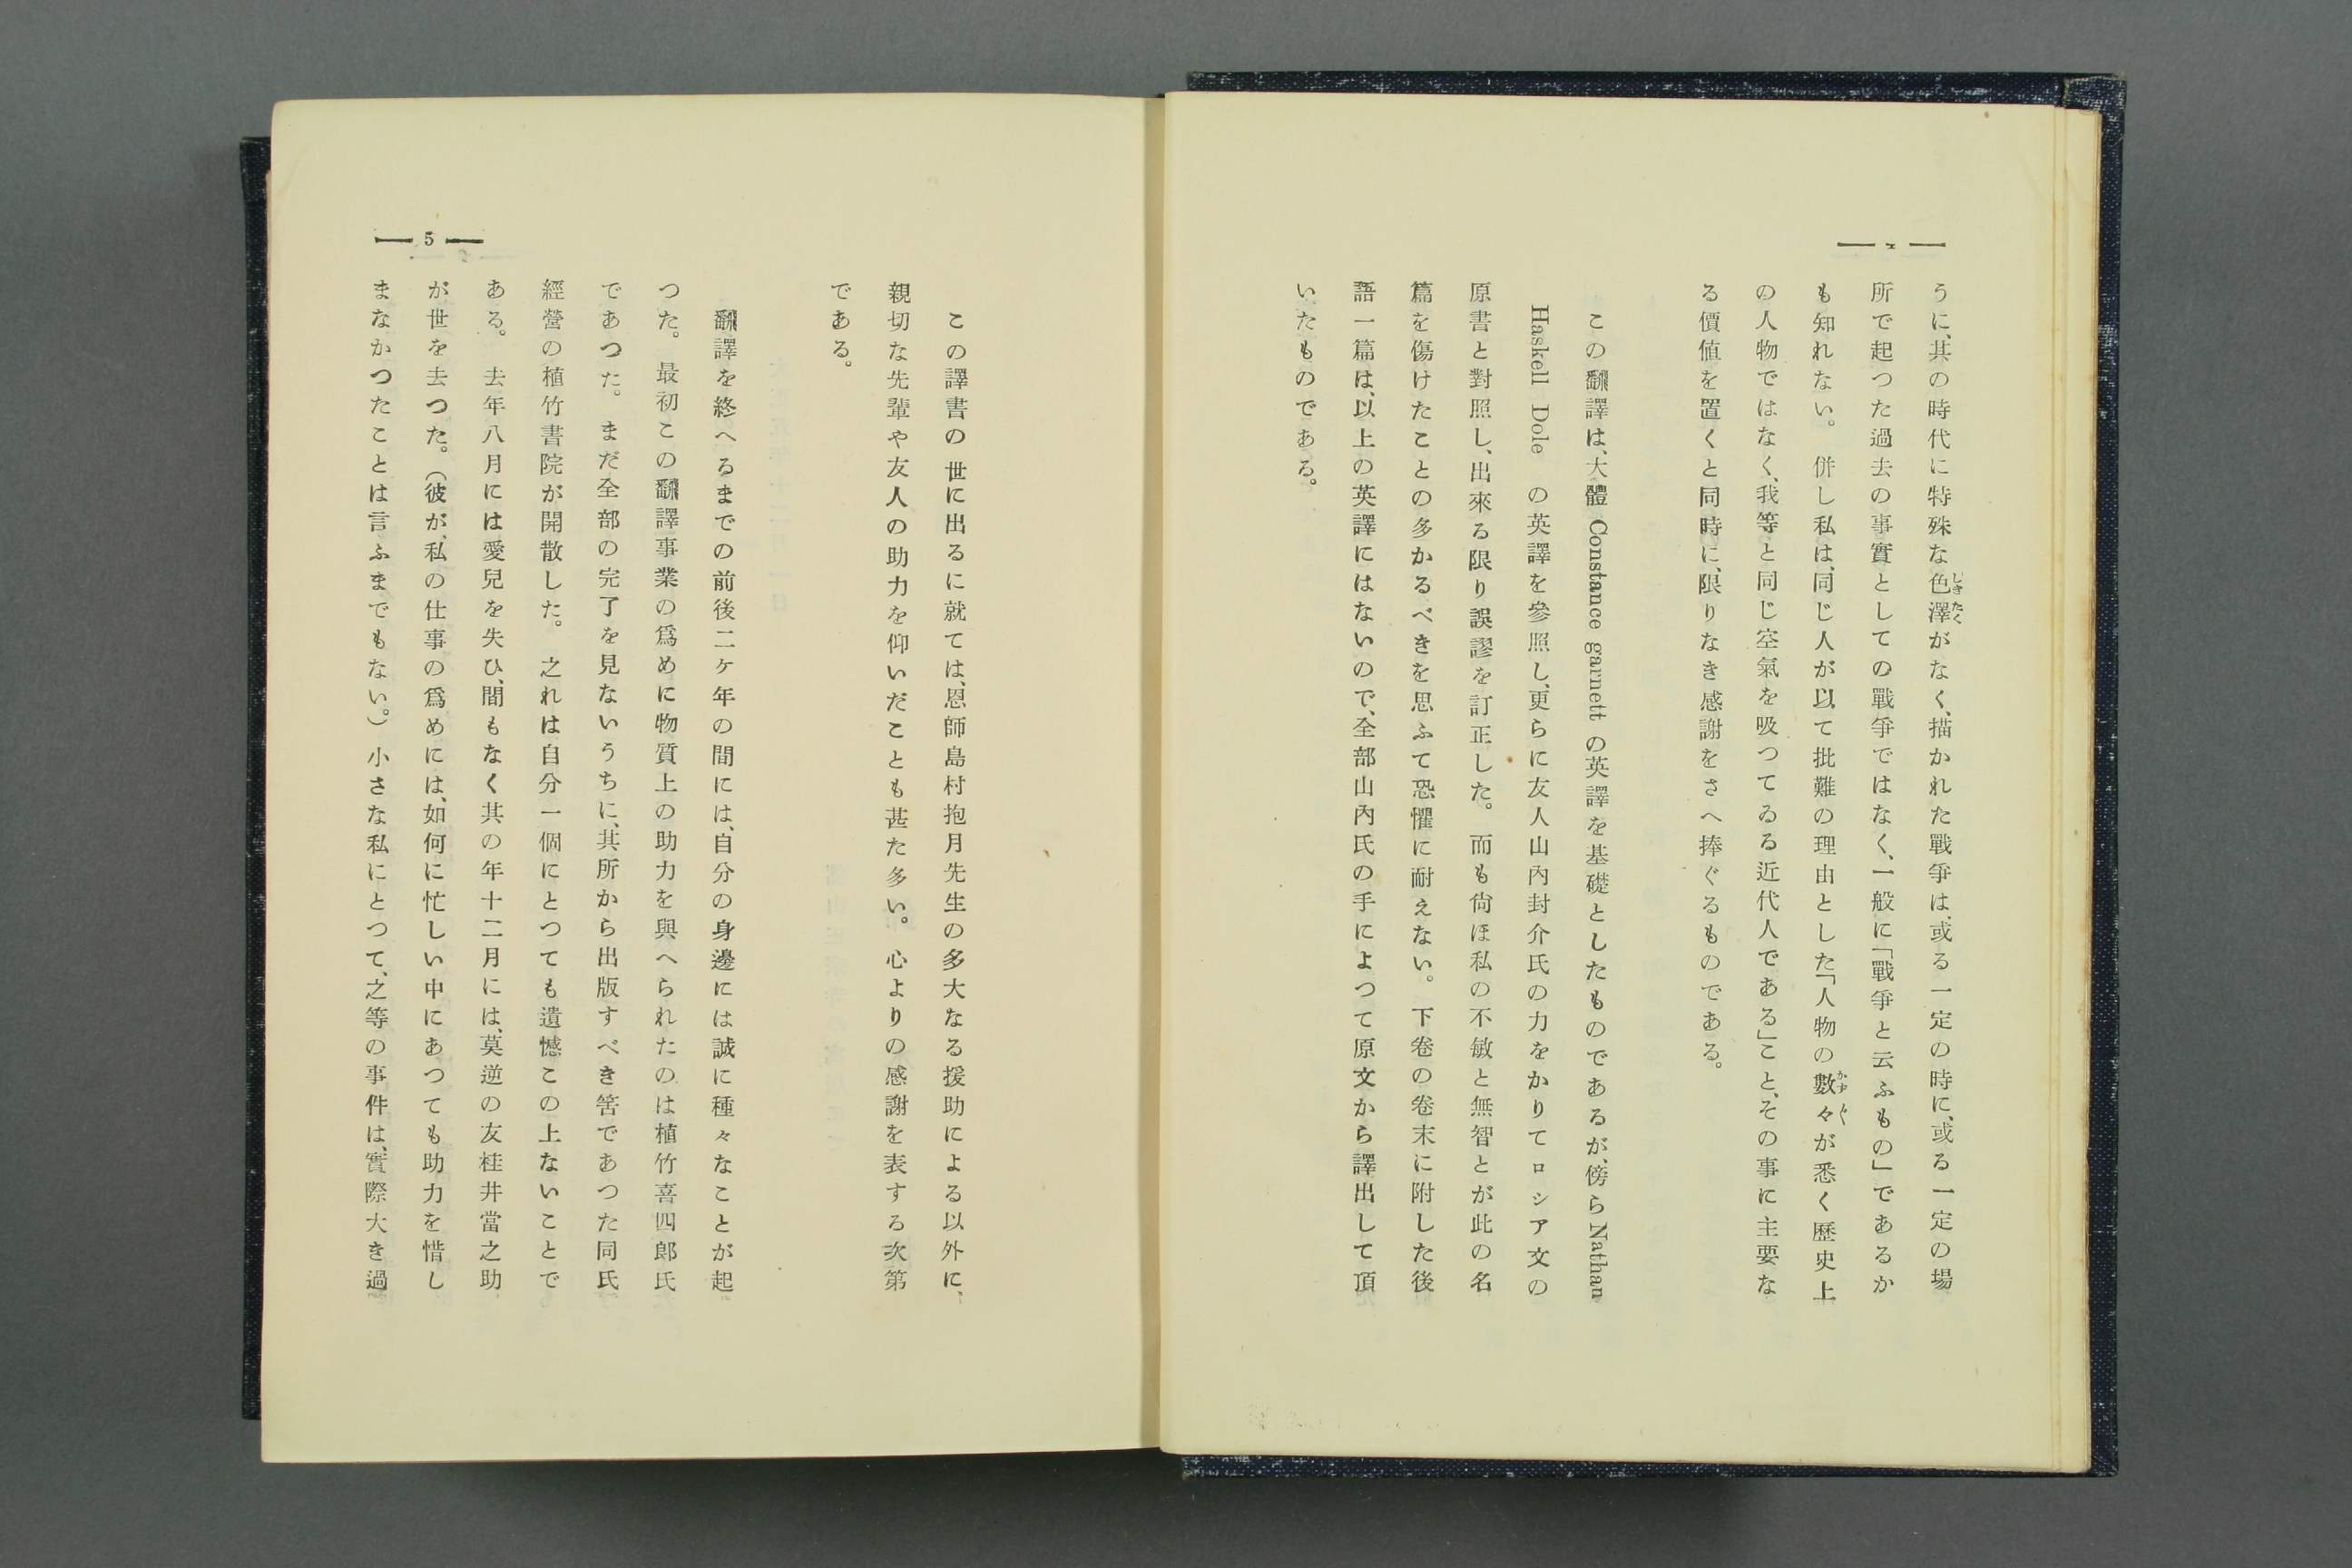 うに、其の時代に特殊な色澤がなく、描かれた戰爭は、或る一定の時に、或る一定の場
所で起つた過去の事實としての戰爭ではなく、一般に「戰爭と云ふもの」であるか
も知れない。併し私は、同じ人が以て批難の理由とした「人物の數々が悉く歷史上
の人物ではなく、我等と同じ空氣を吸つてゐる近代人である」こと、その事に主要な
る價値を置くと同時に、限りなき感謝をさへ捧ぐるものである。
この飜譯は、大體 Constance garnett の英譯を基礎としたものであるが、傍ら Nathan
Haskell Dole の英譯を參照し、更らに友人山內封介氏の力をかりてロシア文の
原書と對照し、出來る限り誤謬を訂正した。而も尙ほ私の不敏と無智とが此の名
篇を傷けたことの多かるべきを思ふて恐懼に耐えない。下卷の卷末に附した後
語一篇は、以上の英譯にはないので、全部山內氏の手によつて原文から譯出して頂
いたものである。
5
この譯書の世に出るに就ては、恩師島村抱月先生の多大なる援助による以外に、
親切な先輩や友人の助力を仰いだことも甚た多い。心よりの感謝を表する次第
である。
飜譯を終へるまでの前後二ケ年の間には、自分の身邊には誠に種々なことが起
つた。最初この飜譯事業の爲めに物質上の助力を與へられたのは植竹喜四郞氏
であつた。まだ全部の完了を見ないうちに、其所から出版すべき筈であつた同氏
經營の植竹書院が開散した。之れは自分一個にとつても遺憾この上ないことで
ある。去年八月には愛兒を失ひ、間もなく其の年十二月には、莫逆の友桂井當之助
が世を去つた。（彼が、私の仕事の爲めには、如何に忙しい中にあつても助力を惜し
まなかつたことは言ふまでもない。）小さな私にとつて、之等の事件は、實際大き過